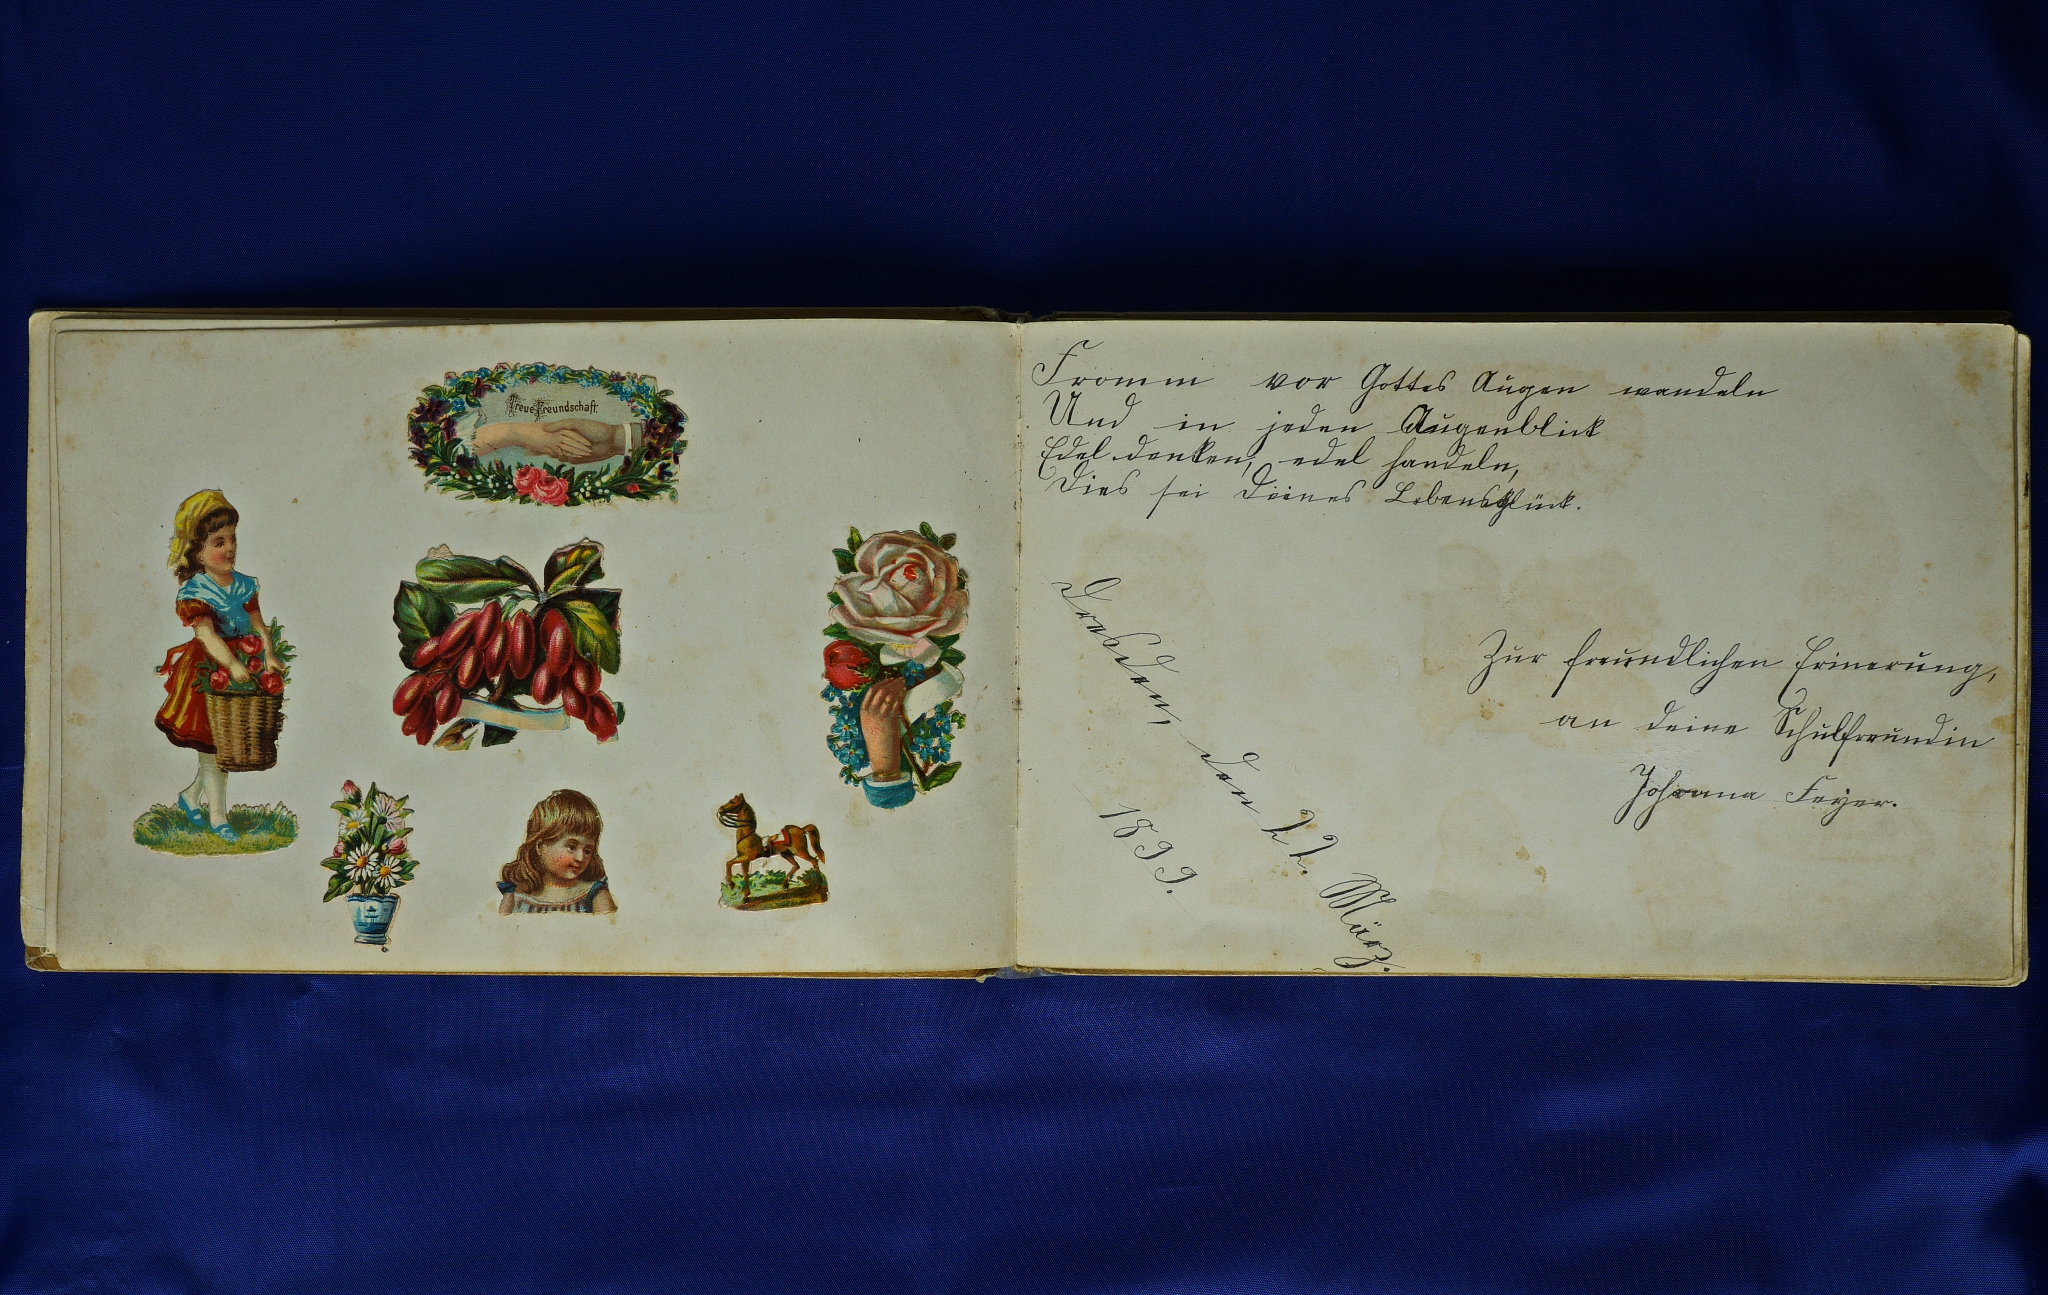 Treue Freundschaft.
Fromm vor Gottes Augen wandeln
Und in jeden Augenblick
Edel denken, edel handeln,
Dies sei Deines Lebensglück.
Zur freundlichen Erinerung,
an deine Schulfreundin
Johanna Feyer.
Dresden, den 22. März.
1899.